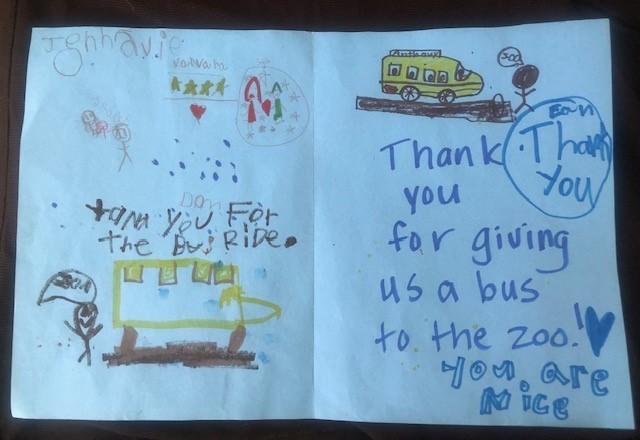 Jenhavie
Don
tank you For
the Bus RiDe.
Anthony
Zoo
Eoin
Thank
You
Thank
you
for giving
us a bus
to the zoo!
you are
Nice